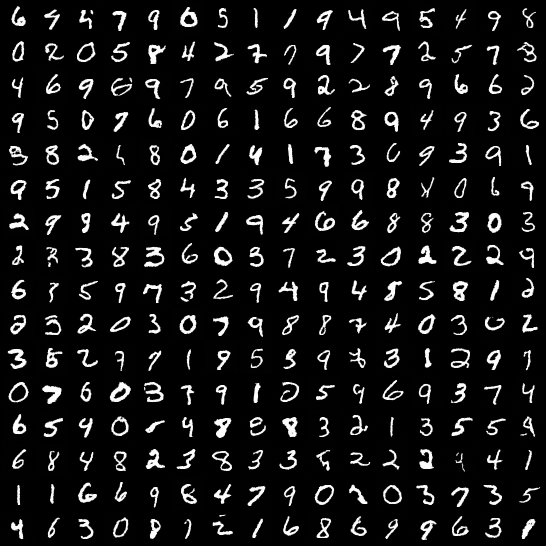 6 4 4 7 9 0 5 1 1 9 4 9 5 4 9 8
0 2 0 5 8 4 2 7 7 9 7 7 2 5 7 3
4 6 9 9 7 9 5 9 2 2 8 9 6 6 2
9 5 0 7 6 0 6 1 6 6 8 9 4 9 3 6
8 2 8 0 1 4 1 7 3 0 9 3 9 1
9 5 1 5 8 4 3 3 5 9 9 8 0 6 9
2 9 9 4 9 5 1 9 4 6 6 8 8 3 0 3
2 3 3 8 3 6 0 3 7 2 3 0 2 2 2 9
6 3 5 9 7 3 2 9 4 9 4 8 5 8 1 2
2 3 2 0 3 0 7 9 8 8 7 4 0 3 0 2
3 5 2 7 7 1 9 5 3 9 3 1 2 9 1
0 7 6 0 3 7 9 1 2 5 9 6 9 3 7 4
6 5 4 0 4 8 8 8 3 2 1 3 5 5 9
6 8 4 8 2 3 8 3 3 5 2 2 2 9 4 1
1 1 6 6 9 8 4 7 9 0 7 0 3 7 3 5
4 6 3 0 8 7 2 1 6 8 6 9 9 6 3 8